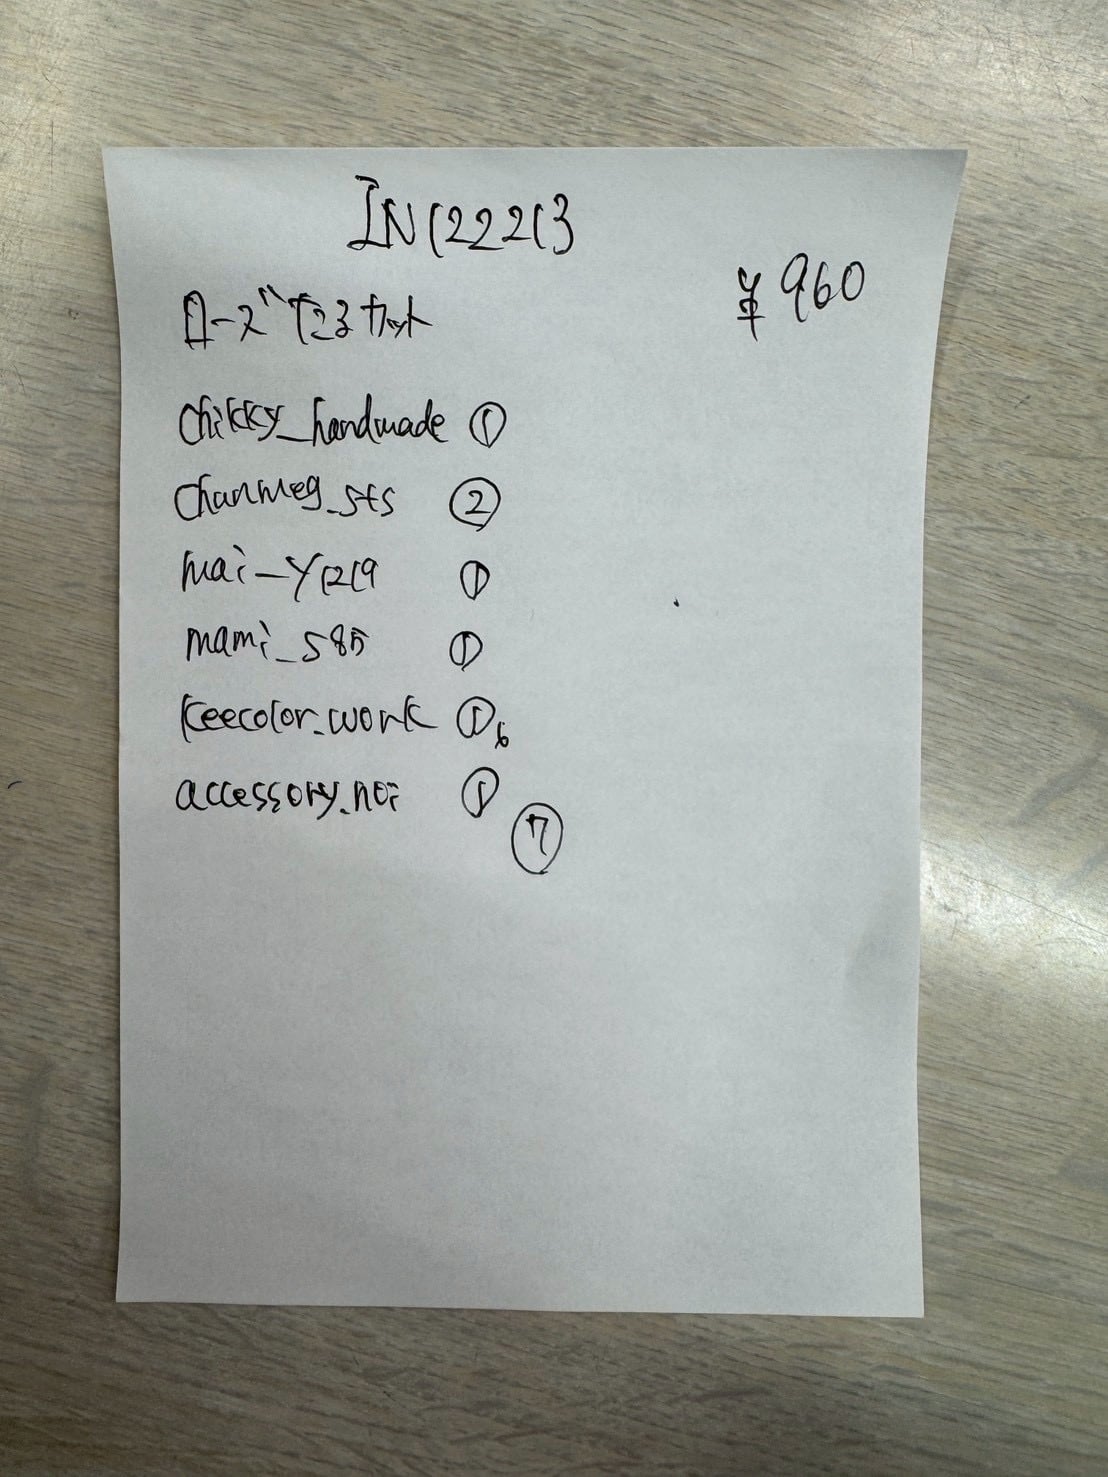 IN122213
¥960
ローズ たる カット
chikky_handmade ①
chanmeg_sts ②
mai_y1219 ①
mami_585 ①
keecolor.work ① 6
accessory.noi ①
⑦